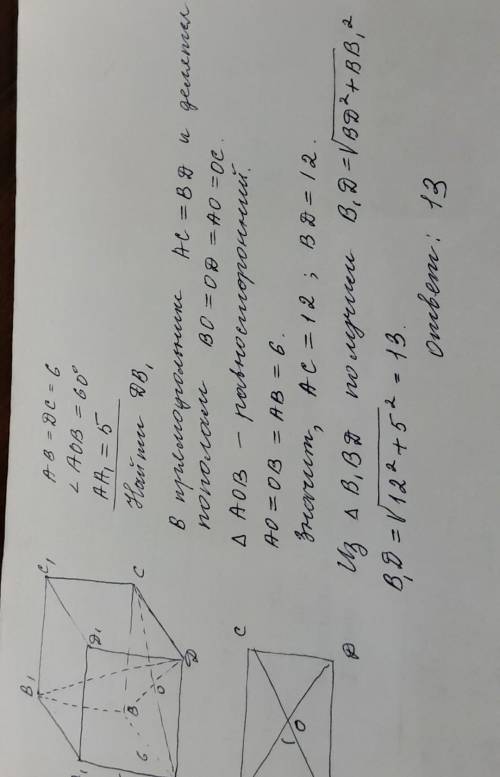 AB = DC = 6
∠AOB = 60°
AA₁ = 5
Найти DB₁
В прямоугольнике AC = BD и делятся
пополам BO = OD = AO = OC.
△ AOB – равносторонний.
AO = OB = AB = 6.
Значит, AC = 12 ; BD = 12.
Из △ B₁BD получим B₁D = √BD² + BB₁²
B₁D = √12² + 5² = 13.
ответ: 13
B₁
C₁
D₁
C
B
O
6
D
C
O
D